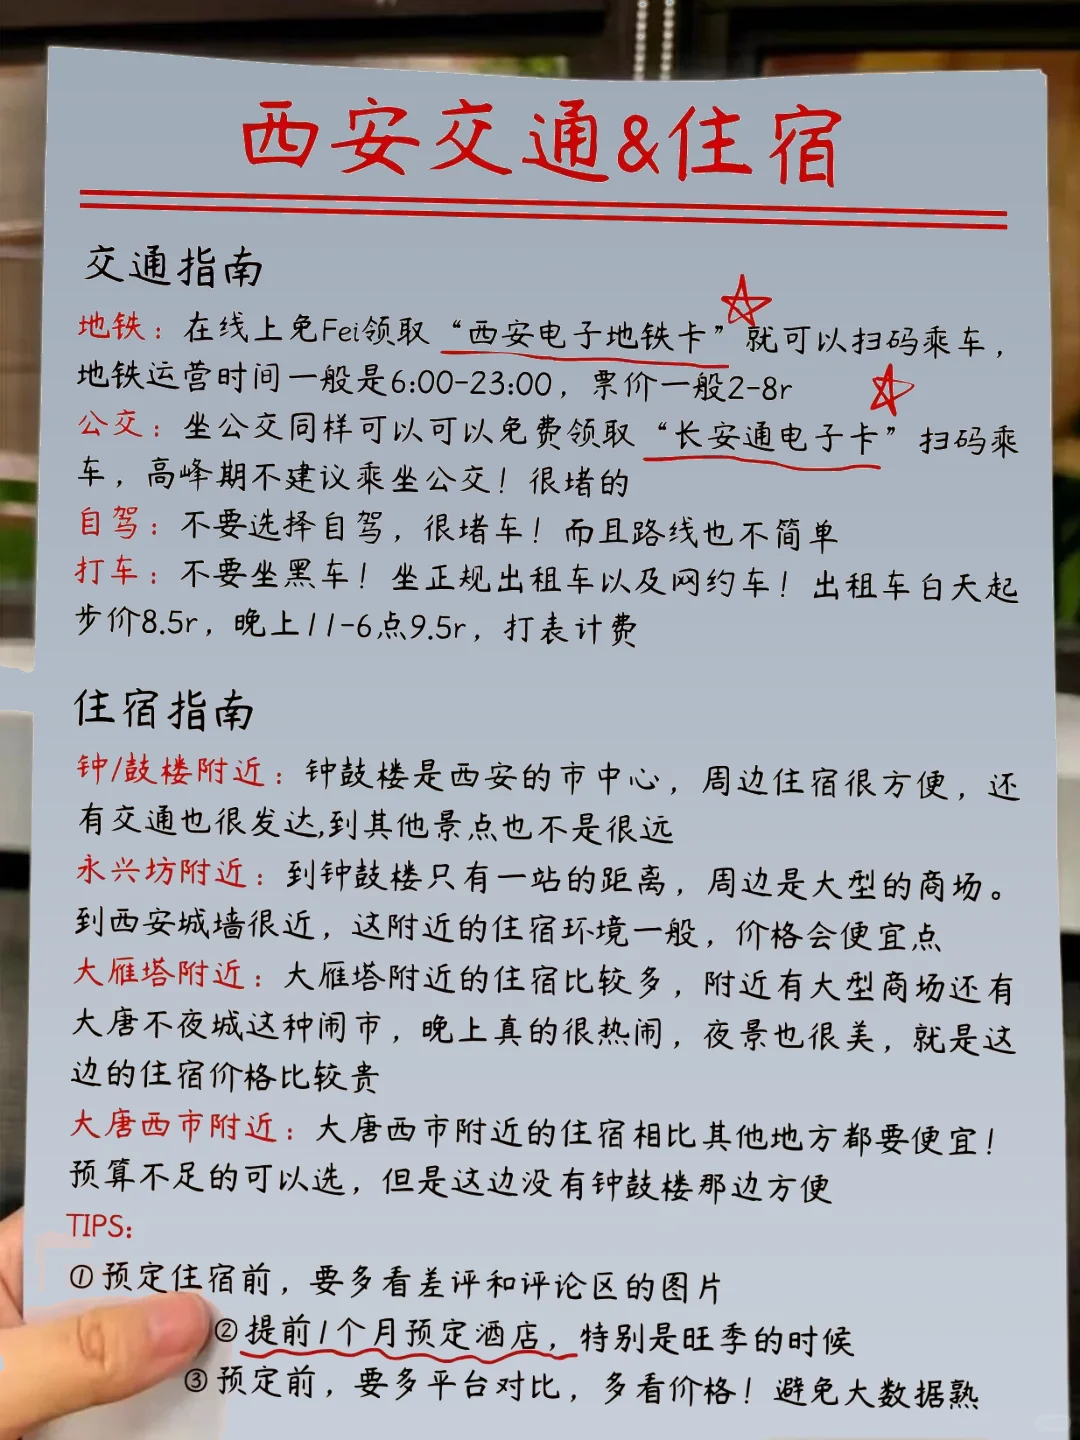 西安交通&住宿
交通指南
地铁：在线上免Fei领取“西安电子地铁卡”就可以扫码乘车，
地铁运营时间一般是6:00-23:00，票价一般2-8r
公交：坐公交同样可以可以免费领取“长安通电子卡”扫码乘
车，高峰期不建议乘坐公交！很堵的
自驾：不要选择自驾，很堵车！而且路线也不简单
打车：不要坐黑车！坐正规出租车以及网约车！出租车白天起
步价8.5r，晚上11-6点9.5r，打表计费
住宿指南
钟/鼓楼附近：钟鼓楼是西安的市中心，周边住宿很方便，还
有交通也很发达,到其他景点也不是很远
永兴坊附近：到钟鼓楼只有一站的距离，周边是大型的商场。
到西安城墙很近，这附近的住宿环境一般，价格会便宜点
大雁塔附近：大雁塔附近的住宿比较多，附近有大型商场还有
大唐不夜城这种闹市，晚上真的很热闹，夜景也很美，就是这
边的住宿价格比较贵
大唐西市附近：大唐西市附近的住宿相比其他地方都要便宜！
预算不足的可以选，但是这边没有钟鼓楼那边方便
TIPS:
①预定住宿前，要多看差评和评论区的图片
②提前1个月预定酒店，特别是旺季的时候
③预定前，要多平台对比，多看价格！避免大数据熟